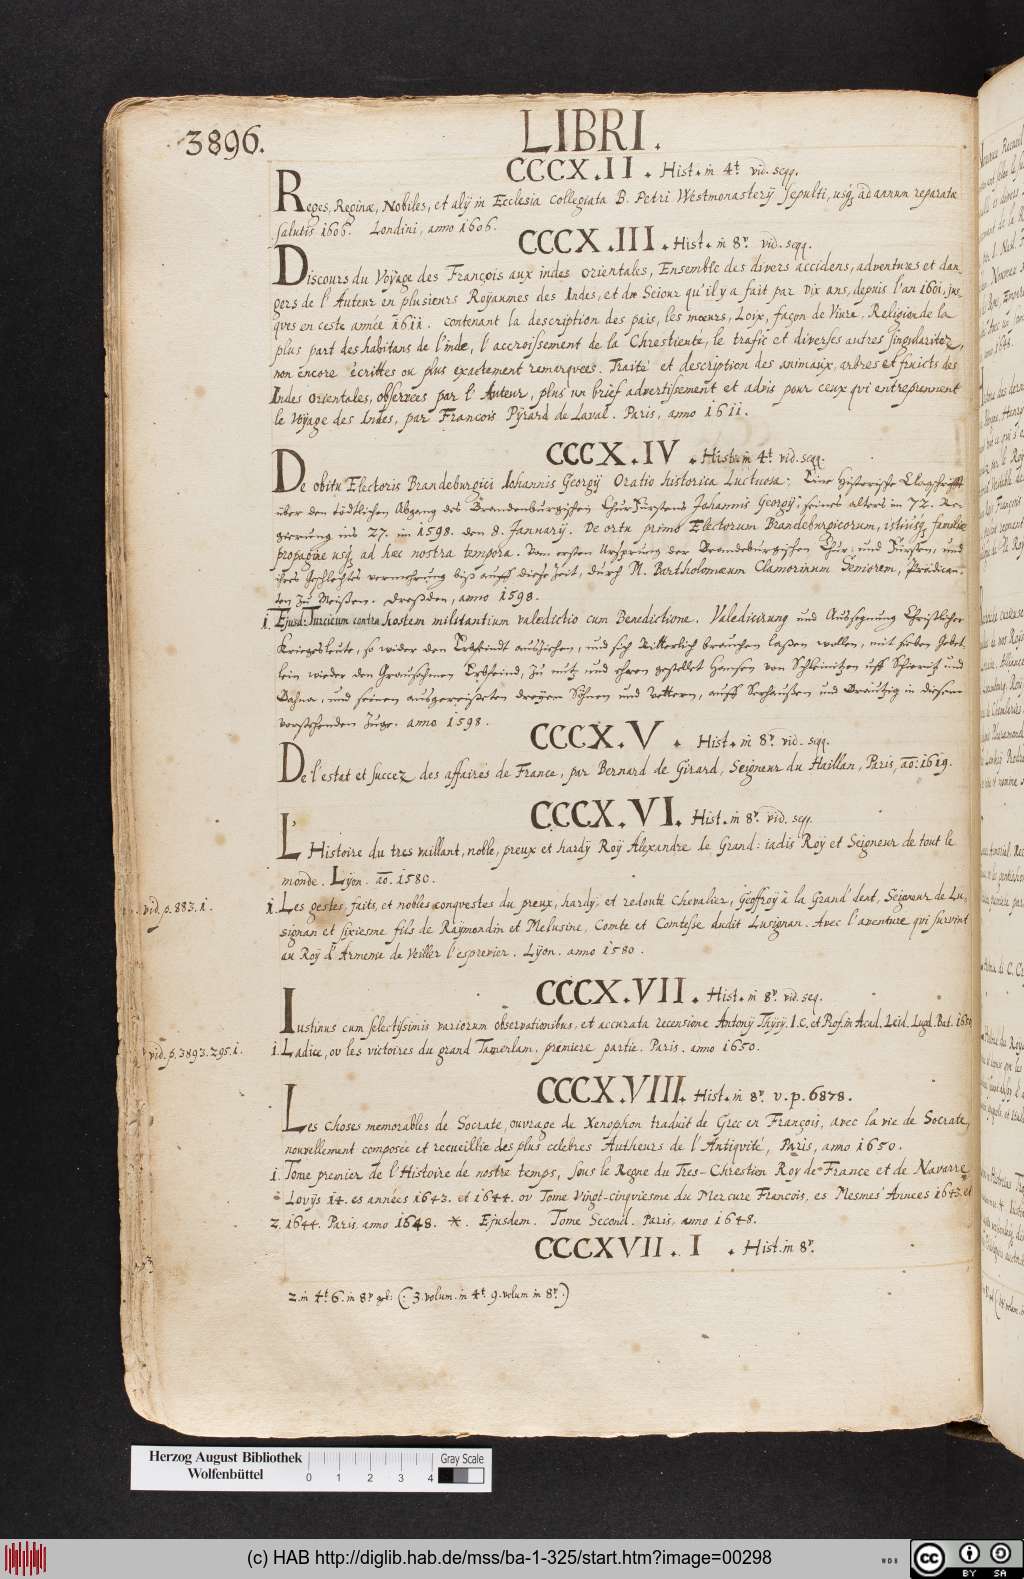 3896.
LIBRI.
CCCX.II. Hist. in 4t. vid. seqq.
Reges, Reginæ, Nobiles, et alij in Ecclesia Collegiata B. Petri Westmonasterij sepulti, usq; ad annum reparatæ
salutis 1606. Londini, anno 1606.
CCCX.III. Hist. in 8v. vid. seqq.
Discours du Voyage des François aux indes orientales, Ensemble des divers accidens, adventures et dan-
gers de l'Auteur en plusieurs Royaumes des Indes, et du Sejour qu'il y a fait par Dix ans, depuis l'an 1601. jus-
ques en ceste année 1611. contenant la description des pais, les mœurs, Loix, façon de Viure, Religion de la
plus part des habitans de l'inde, l'accroissement de la Chrestienté, le trafic et diverses autres singularitez,
non encore écrittes ou plus exactement remarquees. Traité et description des animaux, arbres et fruicts des
Indes orientales, observees par l'Auteur, plus un brief advertisement et advis pour ceux qvi entreprennent
le Voyage des Indes, par François Pyrard de Laval. Paris, anno 1611.
CCCX.IV. Hist. in 4t. vid. seqq.
De obitu Electoris Brandeburgici Johannis Georgij Oratio historica Luctuosa. Eine Historische Klagschrifft
über den tödtlichen Abgang des Brandenburgischen ChurFürstens Johannis Georgij, seines alters im 72. Re-
gierung ins 27. im 1598. den 8. Januarij. De ortu primo Electorum Brandeburgicorum, istiusq; familiæ
propagine usq; ad hæc nostra tempora. Vom ersten Ursprung der Brandeburgischen Chur- und Fürsten, und
ihres Geschlechts vermehrung biß auff diese Zeit, durch M. Bartholomæum Clamorinum Seniorem, Prædican-
ten zu Meißen. Dreßden, anno 1598.
1. Ejusd: Turcicum contra hostem militantium valedictio cum Benedictione. Valedicirung und Aussegnung Christlicher
Kriegesleute, so wider den Erbfeindt ausziehen, und sich Ritterlich brauchen laßen wollen, mit sieben Gebet-
lein wieder den Grausamen Erbfeind, zu nutz und ehren gestellet Hansen von Schleinitzen uff Schieritz und
Dahna, und seinen ausgereißeten dreyen Söhnen und Vettern, auff Seerhausen und in diesem
vorstehenden Zuge. anno 1598.
CCCX.V. Hist. in 8v. vid. seqq.
De l'estat et succez des affaires de France, par Bernard de Girard, Seigneur du Haillan, Paris, ao. 1619.
CCCX.VI. Hist. in 8v. vid. seqq.
L'Histoire du tres vaillant, noble, preux et hardy Roy Alexandre le Grand: iadis Roy et Seigneur de tout le
monde. Lyon. ao. 1580.
vid. p. 883. 1.
1. Les gestes, faits, et nobles conqvestes du preux, hardy, et redouté Chevalier, Geoffroy à la Grand' dent, Seigneur de Lu-
signan et sixiesme fils de Raymondin et Melusine, Comte et Comtesse dudit Lusignan. Avec l'aventure qvi survint
au Roy d'Armenie de Veiller l'esprevier. Lyon. anno 1580.
CCCX.VII. Hist. in 8v. vid. seq.
Iustinus cum selectissimis variorum observationibus, et accurata recensione Antonij Thysij, I.C. et Prof. in Acad. Leid. Lugd. Bat. 1650.
vid. p. 3893. 295. 1.
1. Ladice, ou les victoires du grand Tamerlam. premiere partie. Paris. anno 1650.
CCCX.VIII. Hist. in 8v. v. p. 6878.
Les choses memorables de Socrate, ouvrage de Xenophon traduit de Grec en François, avec la vie de Socrate,
nouvellement composée et recueillie des plus celebres Autheurs de l'Antiqvité, Paris, anno 1650.
1. Tome premier de l'Histoire de nostre temps, sous le Regne du Tres-Chrestien Roy de France et de Navarre
Lovys 14. es années 1643. et 1644. ou Tome Vingt-cinqviesme du Mercure François, es Mesmes Annees 1643. et
2. 1644. Paris, anno 1648. *. Ejusdem. Tome Second. Paris, anno 1648.
CCCXVII.I. Hist. in 8v.
2. in 4t. 6. in 8v. geb: (: 3. volum. in 4t. 9. volum in 8v. :)
Herzog August Bibliothek
Wolfenbüttel
0 1 2 3 4
Gray Scale
(c) HAB http://diglib.hab.de/mss/ba-1-325/start.htm?image=00298
WDB
cc
BY SA